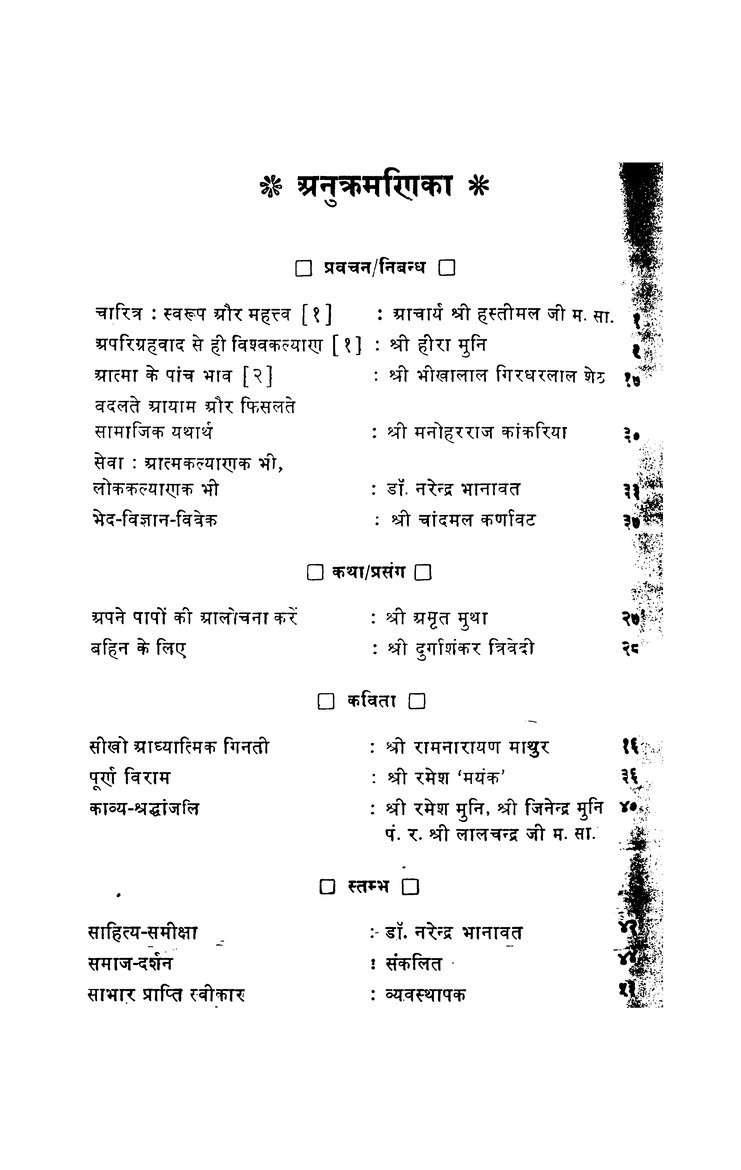 ❊ अनुक्रमणिका ❊
□ प्रवचन/निबन्ध □
चारित्र : स्वरूप और महत्त्व [१] : आचार्य श्री हस्तीमल जी म. सा. १
अपरिग्रहवाद से ही विश्वकल्याण [१] : श्री हीरा मुनि
आत्मा के पांच भाव [२] : श्री भीखालाल गिरधरलाल शेठ १७
बदलते आयाम और फिसलते
सामाजिक यथार्थ : श्री मनोहरराज कांकरिया ३०
सेवा : आत्मकल्याणक भी,
लोककल्याणक भी : डॉ. नरेन्द्र भानावत ३३
भेद-विज्ञान-विवेक : श्री चांदमल कर्णावट ३७
□ कथा/प्रसंग □
अपने पापों की आलोचना करें : श्री अमृत मुथा २७
बहिन के लिए : श्री दुर्गाशंकर त्रिवेदी २८
□ कविता □
सीखो आध्यात्मिक गिनती : श्री रामनारायण माथुर १६
पूर्ण विराम : श्री रमेश ‘मयंक’ ३६
काव्य-श्रद्धांजलि : श्री रमेश मुनि, श्री जिनेन्द्र मुनि ४०
पं. र. श्री लालचन्द्र जी म. सा.
□ स्तम्भ □
साहित्य-समीक्षा : डॉ. नरेन्द्र भानावत
समाज-दर्शन : संकलित
साभार प्राप्ति स्वीकार : व्यवस्थापक